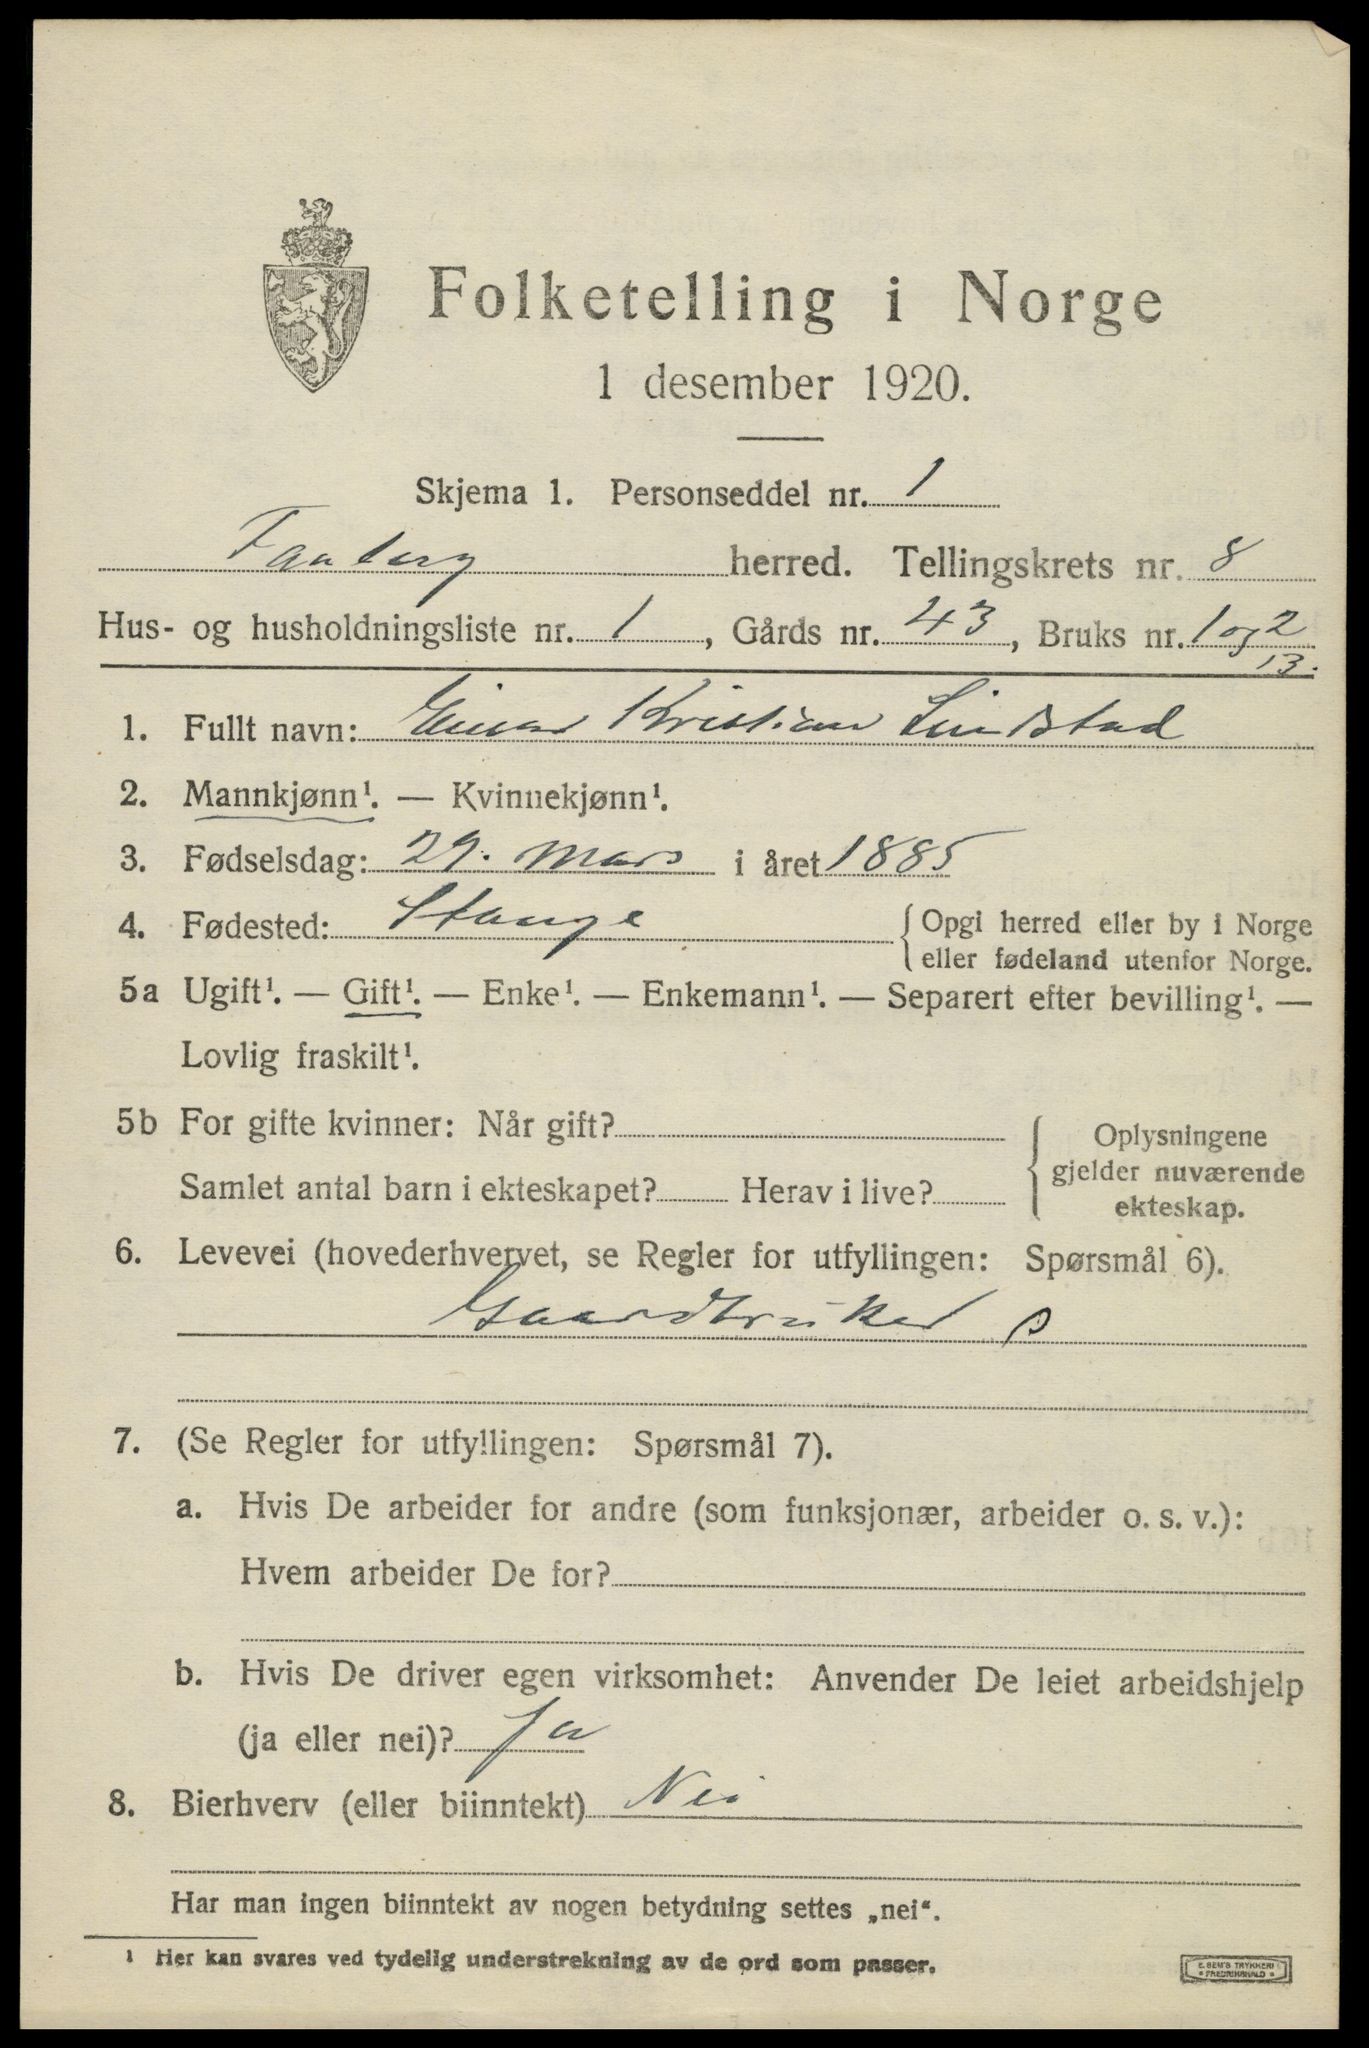 Folketelling i Norge
1 desember 1920.
Skjema 1. Personseddel nr. 1
Faaberg herred. Tellingskrets nr. 8
Hus- og husholdningsliste nr. 1, Gårds nr. 43, Bruks nr. 1 og 2
13.
1. Fullt navn: Einar Kristian Lindstad
2. Mannkjønn¹. — Kvinnekjønn¹.
3. Fødselsdag: 29. mars i året 1885
4. Fødested: Stange { Opgi herred eller by i Norge
eller fødeland utenfor Norge.
5a Ugift¹. — Gift¹. — Enke¹. — Enkemann¹. — Separert efter bevilling¹. —
Lovlig fraskilt¹.
5b For gifte kvinner: Når gift? { Oplysningene
gjelder nuværende
Samlet antal barn i ekteskapet? Herav i live?
ekteskap.
6. Levevei (hovederhvervet, se Regler for utfyllingen: Spørsmål 6).
Gaardbruker s
7. (Se Regler for utfyllingen: Spørsmål 7).
a. Hvis De arbeider for andre (som funksjonær, arbeider o. s. v.):
Hvem arbeider De for?
b. Hvis De driver egen virksomhet: Anvender De leiet arbeidshjelp
(ja eller nei)? Ja
8. Bierhverv (eller biinntekt) Nei
Har man ingen biinntekt av nogen betydning settes „nei“.
¹ Her kan svares ved tydelig understrekning av de ord som passer.
E. SEM'S TRYKKERI
FREDRIKSHALD